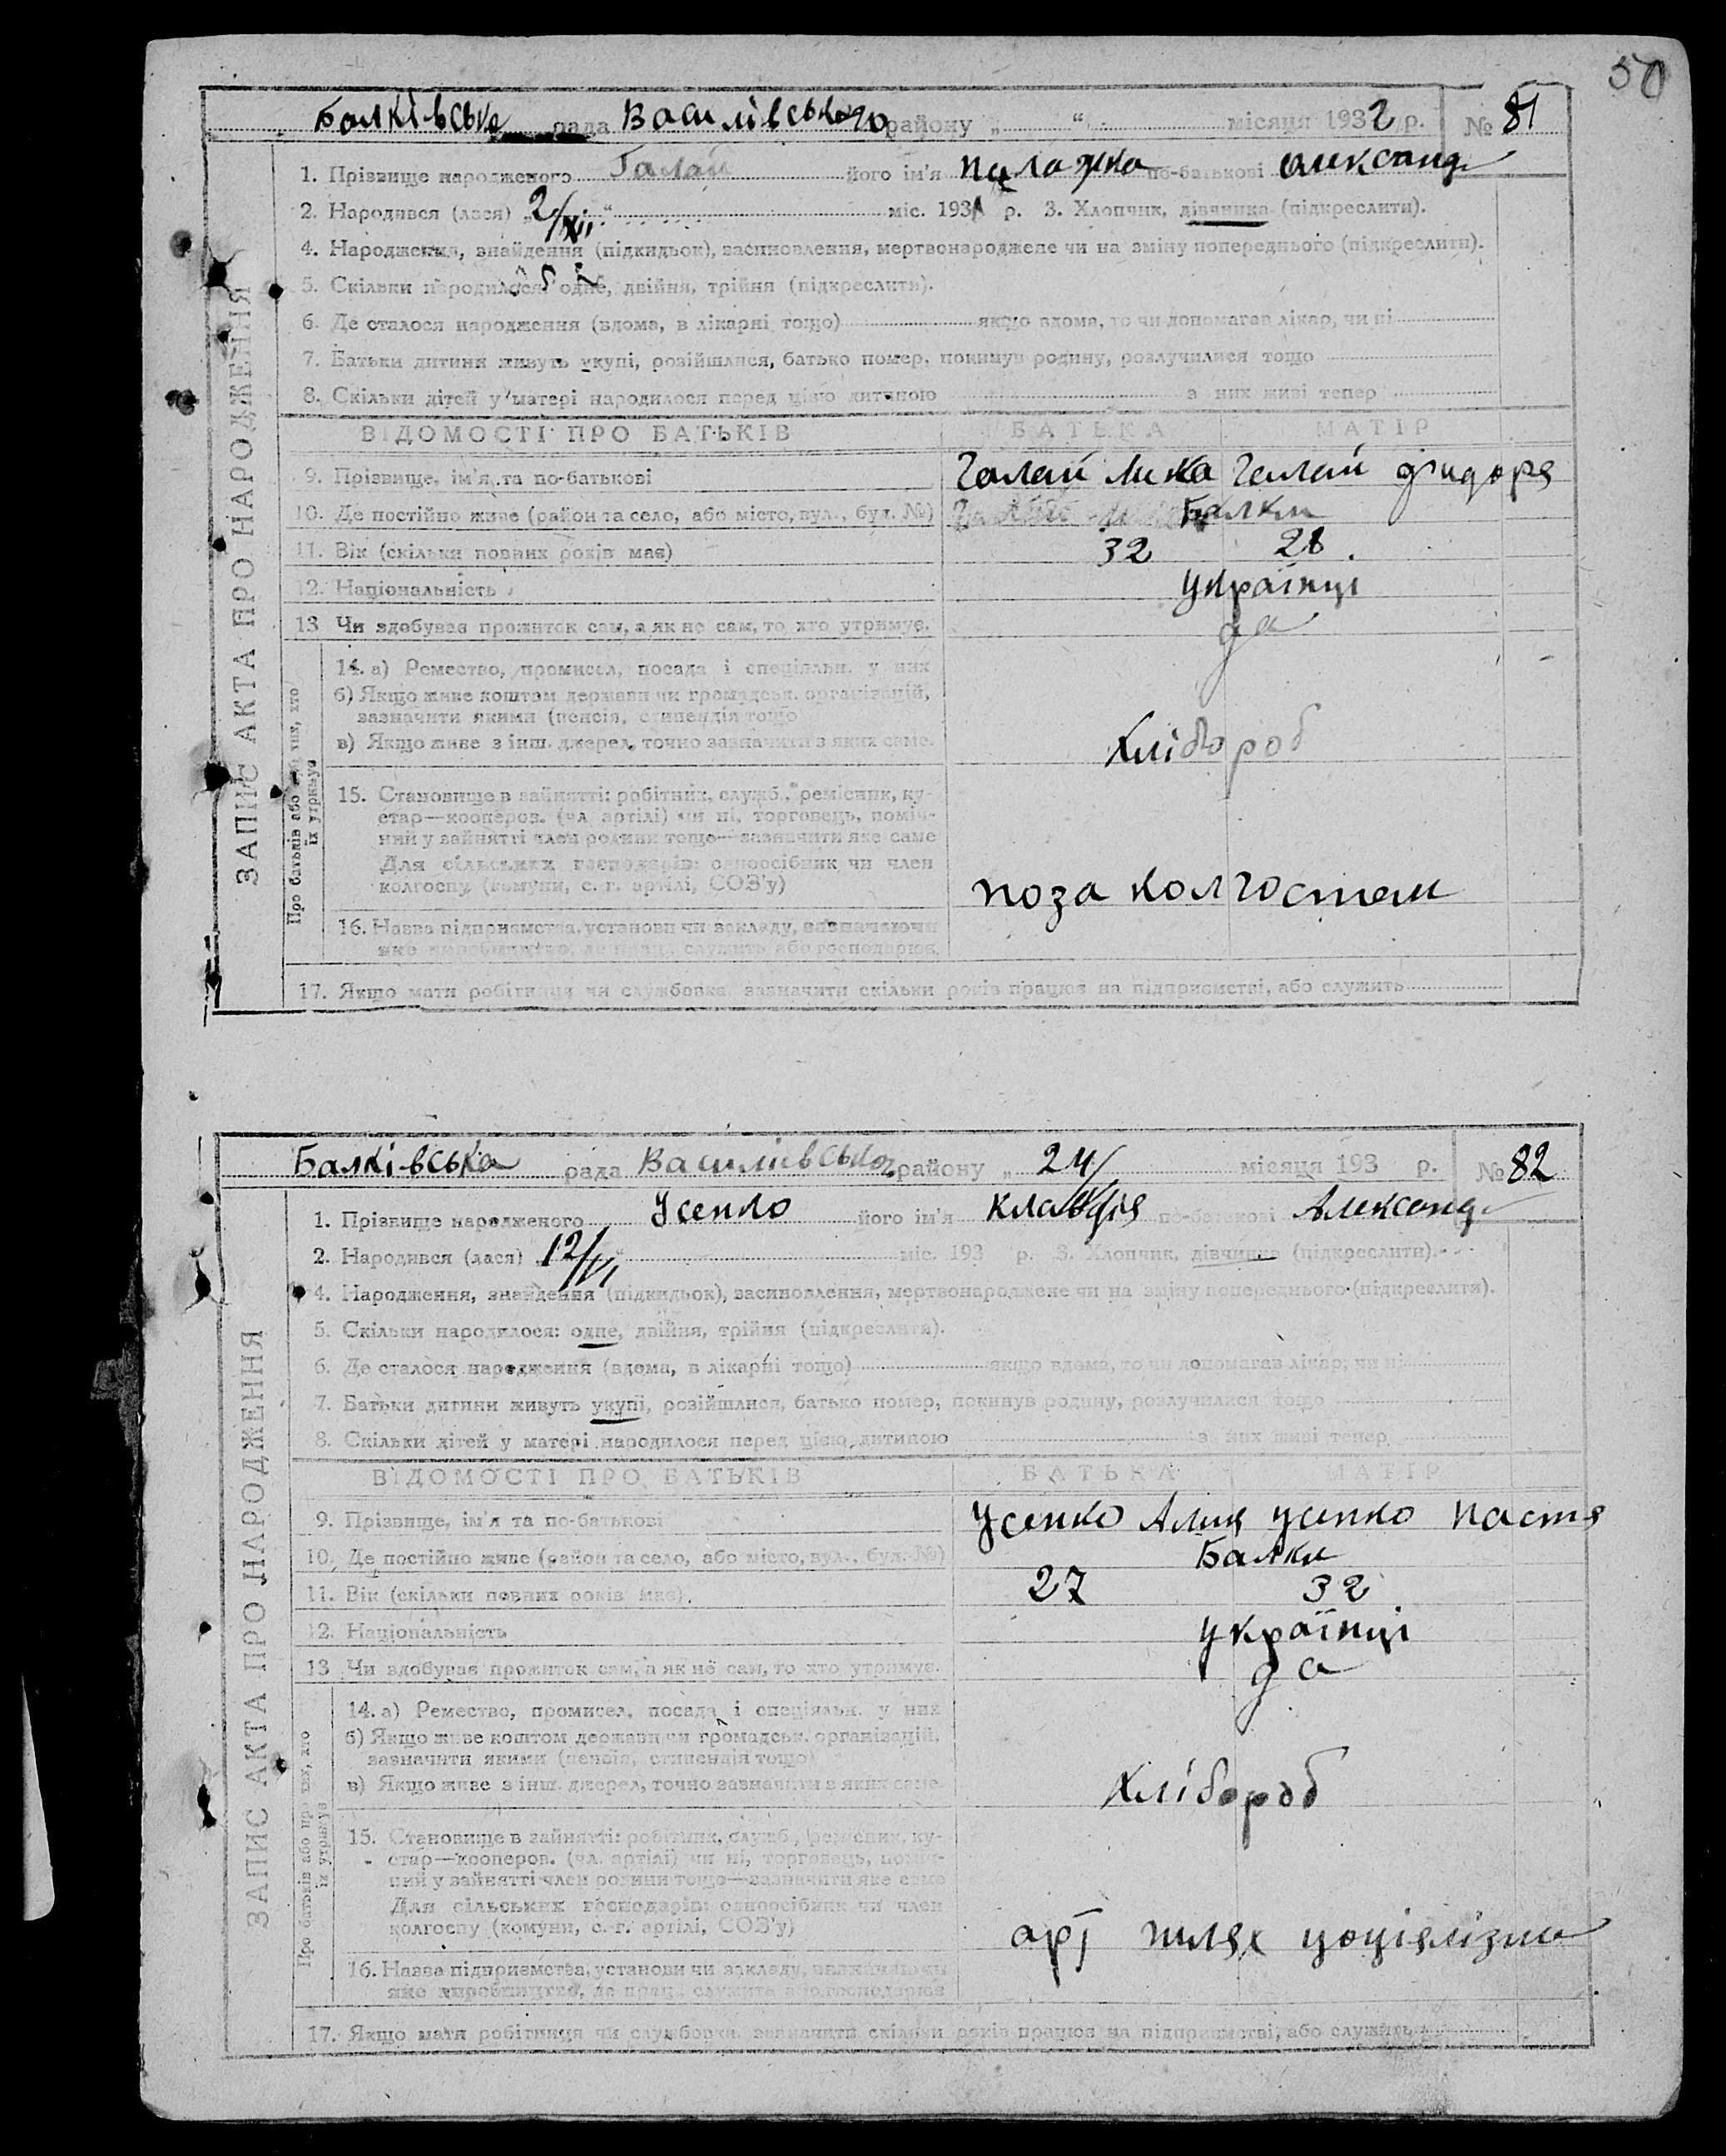 50
Балківська рада Василівського району „ “ місяця 1932 р. № 81
1. Прізвище народженого Галай його ім'я Палажка по-батькові Александ
2. Народився (лася) „2/XII“ міс. 1931 р. 3. Хлопчик, дівчинка (підкреслити).
4. Народження, знайдення (підкидьок), засиновлення, мертвонароджене чи на зміну попереднього (підкреслити).
5. Скільки народилося: одне, двійня, трійня (підкреслити).
6. Де сталося народження (вдома, в лікарні тощо) якщо вдома, то чи допомагав лікар, чи ні
7. Батьки дитини живуть укупі, розійшлися, батько помер, покинув родину, розлучилися тощо
8. Скільки дітей у матері народилося перед цією дитиною з них живі тепер
ВІДОМОСТІ ПРО БАТЬКІВ БАТЬКА МАТІР
9. Прізвище, ім'я та по-батькові Галай Галай
10. Де постійно живе (район та село, або місто, вул., буд. №) Балки
11. Вік (скільки повних років має) 32 28
12. Національність Українці
13 Чи здобуває прожиток сам, а як не сам, то хто утримує. да
14. а) Ремество, промисел, посада і спеціяльн. у них
б) Якщо живе коштом держави чи громадськ. організацій,
зазначити якими (пенсія, стипендія тощо)
в) Якщо живе з інш. джерел, точно зазначити з яких саме. Хлібороб
15. Становище в зайнятті: робітник, служб., ремісник, ку-
стар—кооперов. (чл. артілі) чи ні, торговець, поміч-
ний у зайнятті член родини тощо—зазначити яке саме
Для сільських господарів: одноосібник чи член
колгоспу (комуни, с.-г. артілі, СОЗ'у) поза колгоспом
16. Назва підприємства, установи чи закладу, зазначаючи
яке виробництво, де прац., служить або господарює
17. Якщо мати робітниця чи службовка, зазначити скільки років працює на підприємстві, або служить
ЗАПИС АКТА ПРО НАРОДЖЕННЯ
Про батьків або про них, хто
їх утримує
Балківська рада Василівського району „ 24/ місяця 193 р. № 82
1. Прізвище народженого Усенло його ім'я Клавдія по-батькові Александ
2. Народився (лася) 12/VI міс. 193 р. 3. Хлопчик, дівчинка (підкреслити).
4. Народження, знайдення (підкидьок), засиновлення, мертвонароджене чи на зміну попереднього (підкреслити).
5. Скільки народилося: одне, двійня, трійня (підкреслити).
6. Де сталося народження (вдома, в лікарні тощо) якщо вдома, то чи допомагав лікар, чи ні
7. Батьки дитини живуть укупі, розійшлися, батько помер, покинув родину, розлучилися тощо
8. Скільки дітей у матері народилося перед цією дитиною з них живі тепер
ВІДОМОСТІ ПРО БАТЬКІВ БАТЬКА МАТІР
9. Прізвище, ім'я та по-батькові Усенко Усенко Настя
10. Де постійно живе (район та село, або місто, вул., буд. №) Балки
11. Вік (скільки повних років має) 27 32
12. Національність Українці
13 Чи здобуває прожиток сам, а як не сам, то хто утримує. да
14. а) Ремество, промисел, посада і спеціяльн. у них
б) Якщо живе коштом держави чи громадськ. організацій,
зазначити якими (пенсія, стипендія тощо)
в) Якщо живе з інш. джерел, точно зазначити з яких саме. Хлібороб
15. Становище в зайнятті: робітник, служб., ремісник, ку-
стар—кооперов. (чл. артілі) чи ні, торговець, поміч-
ний у зайнятті член родини тощо—зазначити яке саме
Для сільських господарів: одноосібник чи член
колгоспу (комуни, с.-г. артілі, СОЗ'у) арт шлях цоціялізма
16. Назва підприємства, установи чи закладу, зазначаючи
яке виробництво, де прац., служить або господарює
17. Якщо мати робітниця чи службовка, зазначити скільки років працює на підприємстві, або служить
ЗАПИС АКТА ПРО НАРОДЖЕННЯ
Про батьків або про них, хто
їх утримує